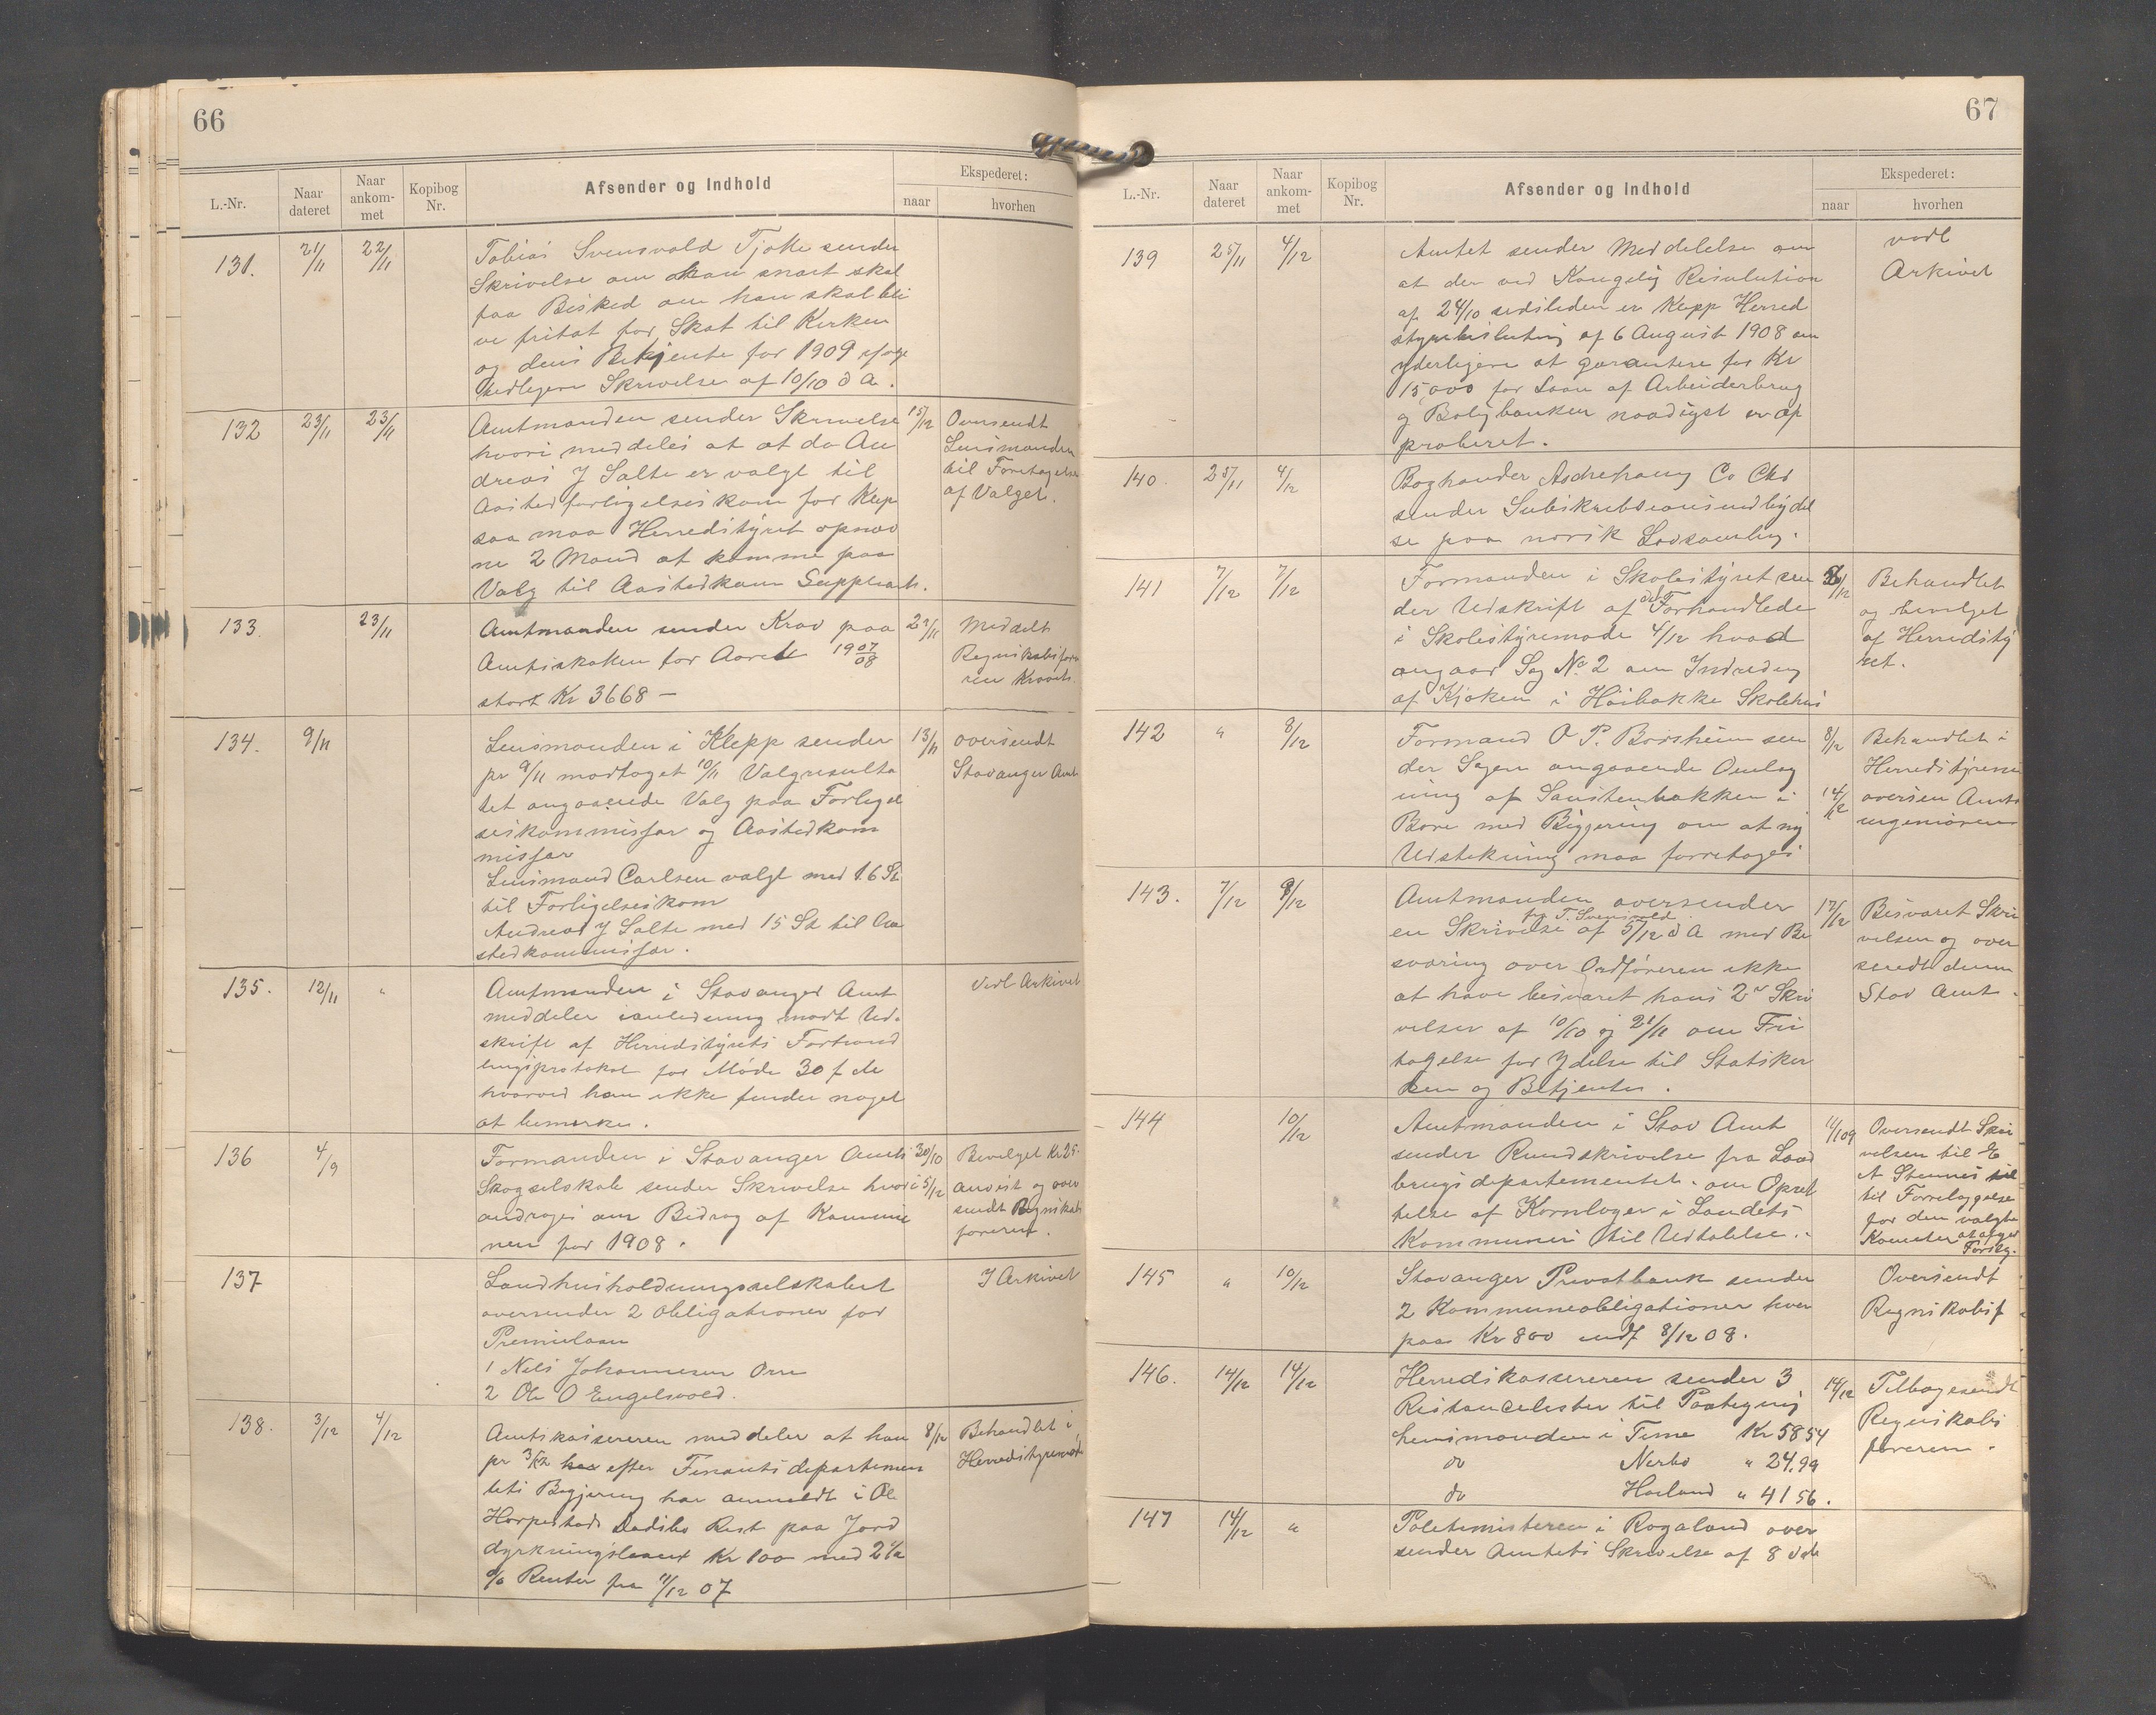 66
L.-Nr.
Naar dateret
Naar ankommet
Kopibog Nr.
Afsender og Indhold
Ekspederet:
naar
hvorhen
131. 21/11 22/11
Tobias Svensvold Tjøtte sender
Skrivelse om han snart skal
faa Besked om han skal bli
ve fritat for Skat til Kirken
og dens Betjente for 1909 ifølge
tidligere Skrivelse af 10/10 d A.
132 23/11 23/11
Amtmanden sender Skrivelse 15/12 Oversendt
hvori meddeles at at da An Lensmanden
dreas J Salte er valgt til til Foretagelse
Aastedforligelseskom for Klep af Valget.
saa maa Herredstyret opnæv
ne 2 Mand at komme paa
Valg til Aastedkom Suppleant.
133. 23/11
Amtmanden sender Krav paa 2?/11 Meddelt
Amtsskatten for Aaret 1907/08 Regnskabsfø
stort Kr 3668 — ren Kravets
134. 9/11
Lensmanden i Klepp sender 13/11 oversendt
pr 9/11 modtaget 10/11 Valgresulta Stavanger Amt
tet angaaende Valg paa Forligel
seskommissær og Aastedkom
missær
Lensmand Carlsen valgt med 16 St
til Forligelseskom
Andreas J Salte med 15 St til Aa
stedkommissær.
135. 12/11 "
Amtmanden i Stavanger Amt Vedl Arkivet
meddeler i anledning modt Ud-
skrift af Herredstyrets Forhand
lingsprotokol for Møde 30 f. de
hvorved han ikke finder noget
at bemerke.
136 4/9
Formanden i Stavanger Amts 30/10 Bevilget Kr 25.
Skogselskab sender Skrivelse hvori 5/12 anvist og over
andrages om Bidrag af Kommu sendt Regnskabs
nen for 1908. føreren.
137
Landhusholdningsselskabet I Arkivet
oversender 2 Obligationer for
Premielaan
1 Nils Johannesen Orre
2 Ole O Engelsvold.
138. 3/12 4/12
Amtskassereren meddeler at han 8/12 Behandlet i
pr 3/12 efter Finantsdepartemen Herredstyremøte
tets Begjæring har anmeldt i Ole
Horpestads Dødsbo Rest paa Jord
dyrkningslaanet Kr 100 med 2 1/2
% Renter fra 11/12 07
67
L.-Nr.
Naar dateret
Naar ankommet
Kopibog Nr.
Afsender og Indhold
Ekspederet:
naar
hvorhen
139 25/11 4/12
Amtet sender Meddelelse om vedl
at der ved Kongelig Resolution Arkivet
af 24/10 sidstleden er Klepp Herred
styrebeslutning af 6 August 1908 om
yderligere at garantere for Kr
15,000 for Laan af Arbeiderbrug
og Boligbanken naadigst er ap
proberet.
140. 25/11 4/12
Boghandler Aschehoug Co Chr
sender Subskribsionsindbydel
se paa norsk Lovsamling.
141 7/12 7/12
Formanden i Skolestyret sen 8/12 Behandlet
der Udskrift af det Forhandlede og bevilget
i Skolestyremøde 4/12 hvad af Hérredsty
angaar Sag No 2 om Indreding ret.
af Kjøken i Høibakke Skolehus
142 " 8/12
Formand O P. Borsheim sen 8/12 Behandlet i
der Sagen angaaende Omlæg Herredstyrem
ning af Sanstenbakken i 14/12 oversen Amts
Bore med Begjæring om at ny ingeniøren
Udstikning maa foretages
143. 7/12 9/12
Amtmanden oversender 17/12 Besvaret Skri
en Skrivelse fra T. Svensvold af 5/12 d A med Be velsen og over
sværing over Ordføreren ikke sendt denne
at have besvaret hans 2de Skri Stav Amt.
velser af 10/10 og 21/11 om Fri
tagelse for Ydelse til Statskir
ken og Betjente.
144 10/12
Amtmanden i Stav Amt 11/1 09 Oversendt Skri
sender Rundskrivelse fra Land velsen til
brugsdepartementet om Opret til Forelæggelse
telse af Kornlager i Landets for den valgte
Kommuner til Udtalelse. Komite at afgi Forslag.
145 " 10/12
Stavanger Privatbank sender Oversendt
2 Kommuneobligationer hver Regnskabsf
paa Kr 800 indf 8/12 08.
146. 14/12 14/12
Herredskassereren sender 3 14/12 Tilbagesendt
Restancelister til Paategning Regnskabs
Lensmanden i Time Kr 58 54 føreren.
do Nerbø " 24,99
do Haaland " 41 56.
147 14/12 "
Politimesteren i Rogaland over
sender Amtets Skrivelse af 8 d de